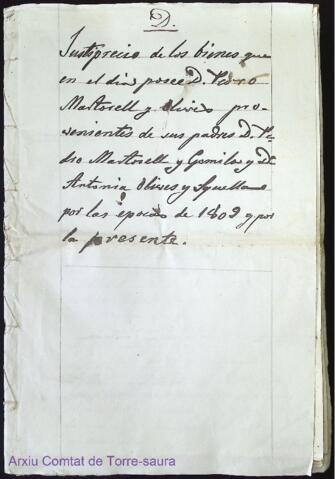 D.
Justiprecio de los bienes que
en el dia posee D. Pedro
Martorell y Olives pro-
venientes de sus padres D. Pe-
dro Martorell y Gomila y Dª
Antonia Olives y Squella
por las epocas de 1809 y por
la presente.
Arxiu Comtat de Torre-saura